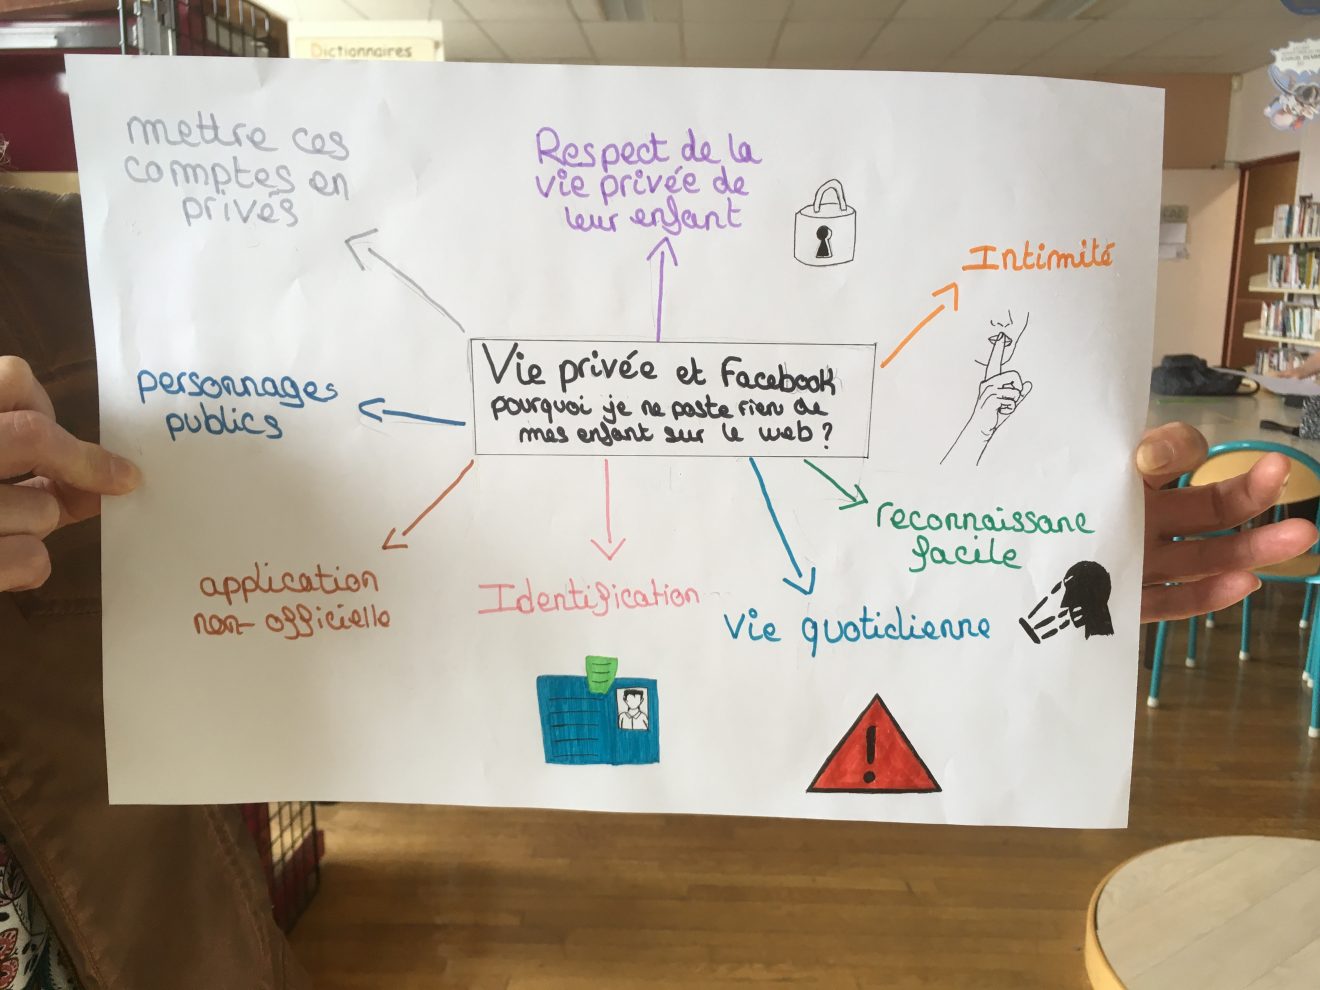 Dictionnaires
mettre ces
comptes en
privés
Respect de la
vie privée de
leur enfant
Intimité
Vie privée et Facebook
pourquoi je ne poste rien de
mes enfant sur le web ?
personnages
publics
reconnaissance
facile
application
non-officielle
Identification
Vie quotidienne
!